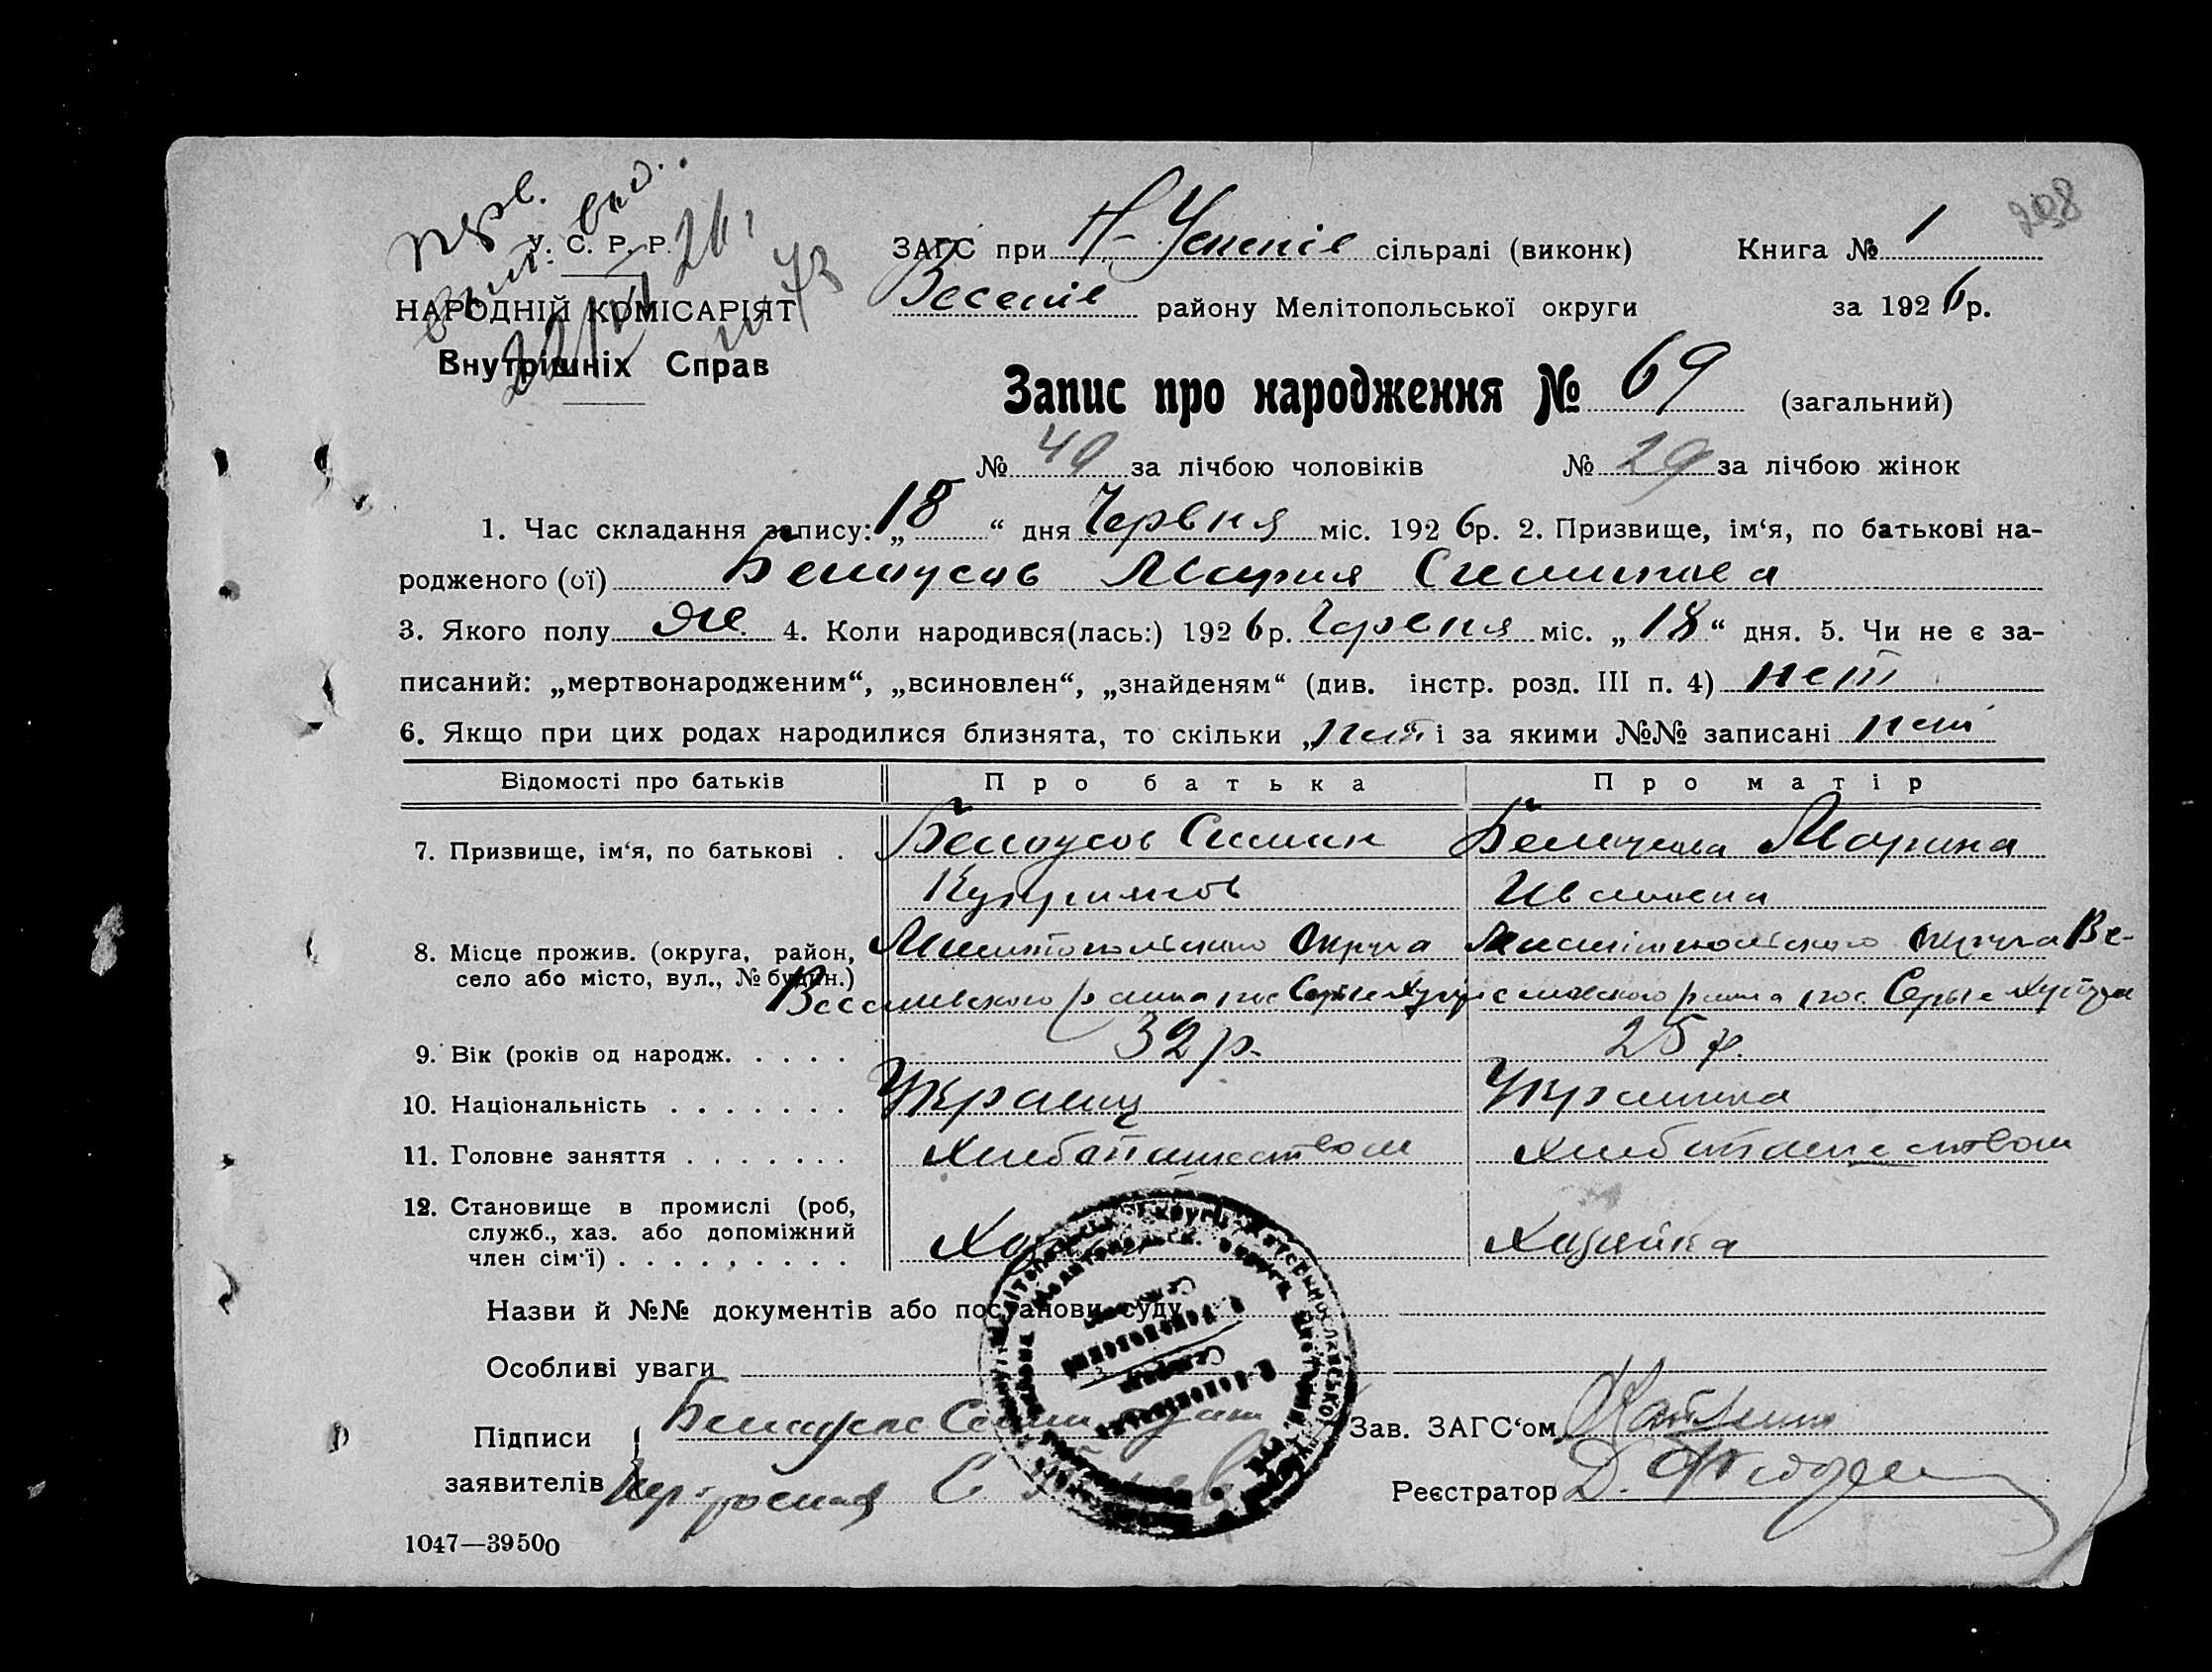 208
У. С. Р. Р.
НАРОДНІЙ КОМІСАРІЯТ
Внутрішніх Справ
ЗАГС при Н-Успенів сільраді (виконк) Книга № 1
Веселів району Мелітопольської округи за 1926р.
Запис про народження № 69 (загальний)
№ 40 за лічбою чоловіків № 29 за лічбою жінок
1. Час складання запису: „18“ дня Червня міс. 1926р. 2. Призвище, ім‘я, по батькові на-
родженого (ої) Белоусов Мария
3. Якого полу Же. 4. Коли народився(лась:) 1926р. Червня міс. „18“ дня. 5. Чи не є за-
писаний: „мертвонародженим“, „всиновлен“, „знайденям“ (див. інстр. розд. III п. 4) нет
6. Якщо при цих родах народилися близнята, то скільки „нет“ і за якими №№ записані нет
Відомості про батьків Про батька Про матір
7. Призвище, ім‘я, по батькові . Белоусов Симин Белоусова Марина
Куприянов Ивановна
8. Місце прожив. (округа, район, Мелитопольского Округа Мелитопольского Округа Ве-
село або місто, вул., № будин.) Веселивского раина пос Серые Хутора селивского раина пос. Серые Хутора
9. Вік (років од народж. . . . . 32 р. 25 р.
10. Національність . . . . . . . Украинц Украинка
11. Головне заняття . . . . . . . Хлебопашеством Хлебопашеством
12. Становище в промислі (роб,
служб., хаз. або допоміжний
член сім‘ї) . . . . . . . . . . Хозяйка
Назви й №№ документів або постанови суду
Особливі уваги
Підписи Зав. ЗАГС‘ом
заявителів Реєстратор Д.
1047—39500